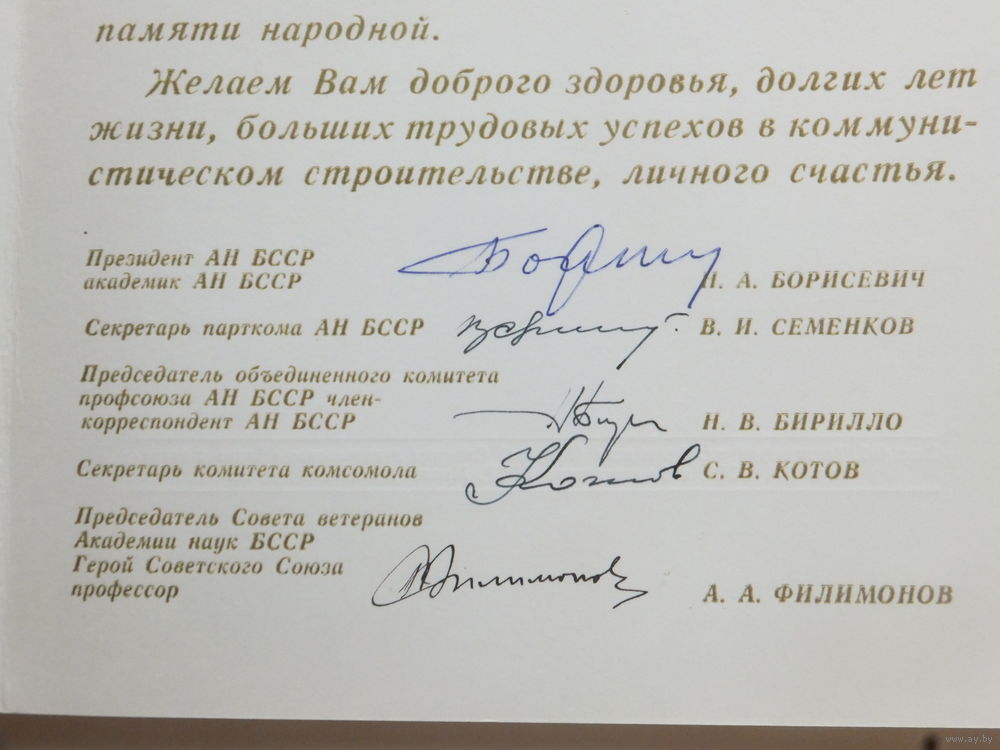 памяти народной.
Желаем Вам доброго здоровья, долгих лет
жизни, больших трудовых успехов в коммуни-
стическом строительстве, личного счастья.
Президент АН БССР
академик АН БССР Н. А. БОРИСЕВИЧ
Секретарь парткома АН БССР В. И. СЕМЕНКОВ
Председатель объединенного комитета
профсоюза АН БССР член-
корреспондент АН БССР Н. В. БИРИЛЛО
Секретарь комитета комсомола Котов С. В. КОТОВ
Председатель Совета ветеранов
Академии наук БССР
Герой Советского Союза
профессор Филимонов А. А. ФИЛИМОНОВ
www.ay.by